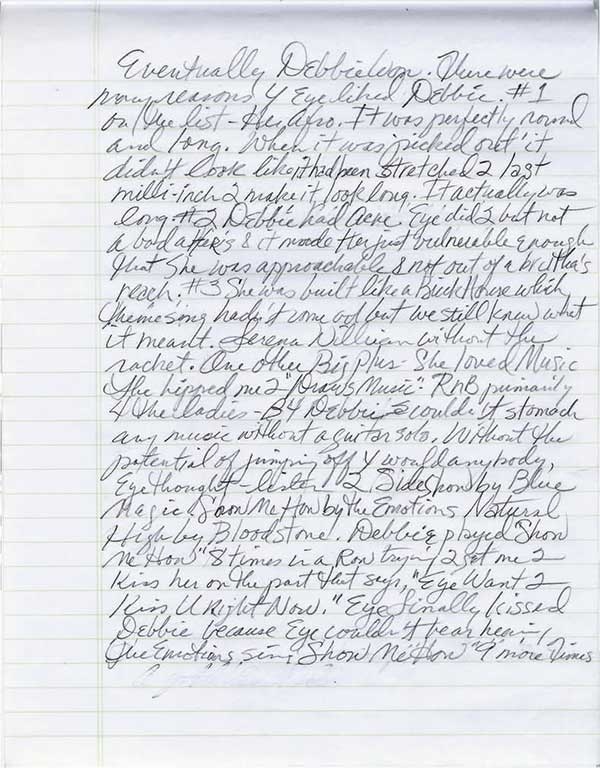 Eventually Debbie won. There were
many reasons 4 Eye liked Debbie. #1
on the list - Her Afro. It was perfectly round
and long. When it was picked out it
didn't look like it had been stretched 2 last
milli-inch 2 make it look long. It actually was
long. #2 Debbie had Acne. Eye did 2 but not
a bad as hers & it made Her just vulnerable enough
that She was approachable & not out of a brutha's
reach. #3 She was built like a Brick House which
theme song hadn't come out but we still knew what
it meant. Serena William without the
racket. One other Big plus - She loved Music
She hipped me 2 "Draws Music". RnB primarily
4 the ladies - B4 Debbie couldn't stomach
any music without a guitar solo. Without the
potential of jumping off Y would anybody,
Eye thought - listen 2 Sideshow by Blue
Magic. Show Me How by the Emotions Natural
High by Bloodstone. Debbie played Show
Me How" 8 times in a Row tryin' 2 get me 2
Kiss her on the part that says, "Eye Want 2
Kiss U Right Now." Eye finally kissed
Debbie because Eye couldn't bear hearin'
the Emotions sing Show Me How" 9 more Times